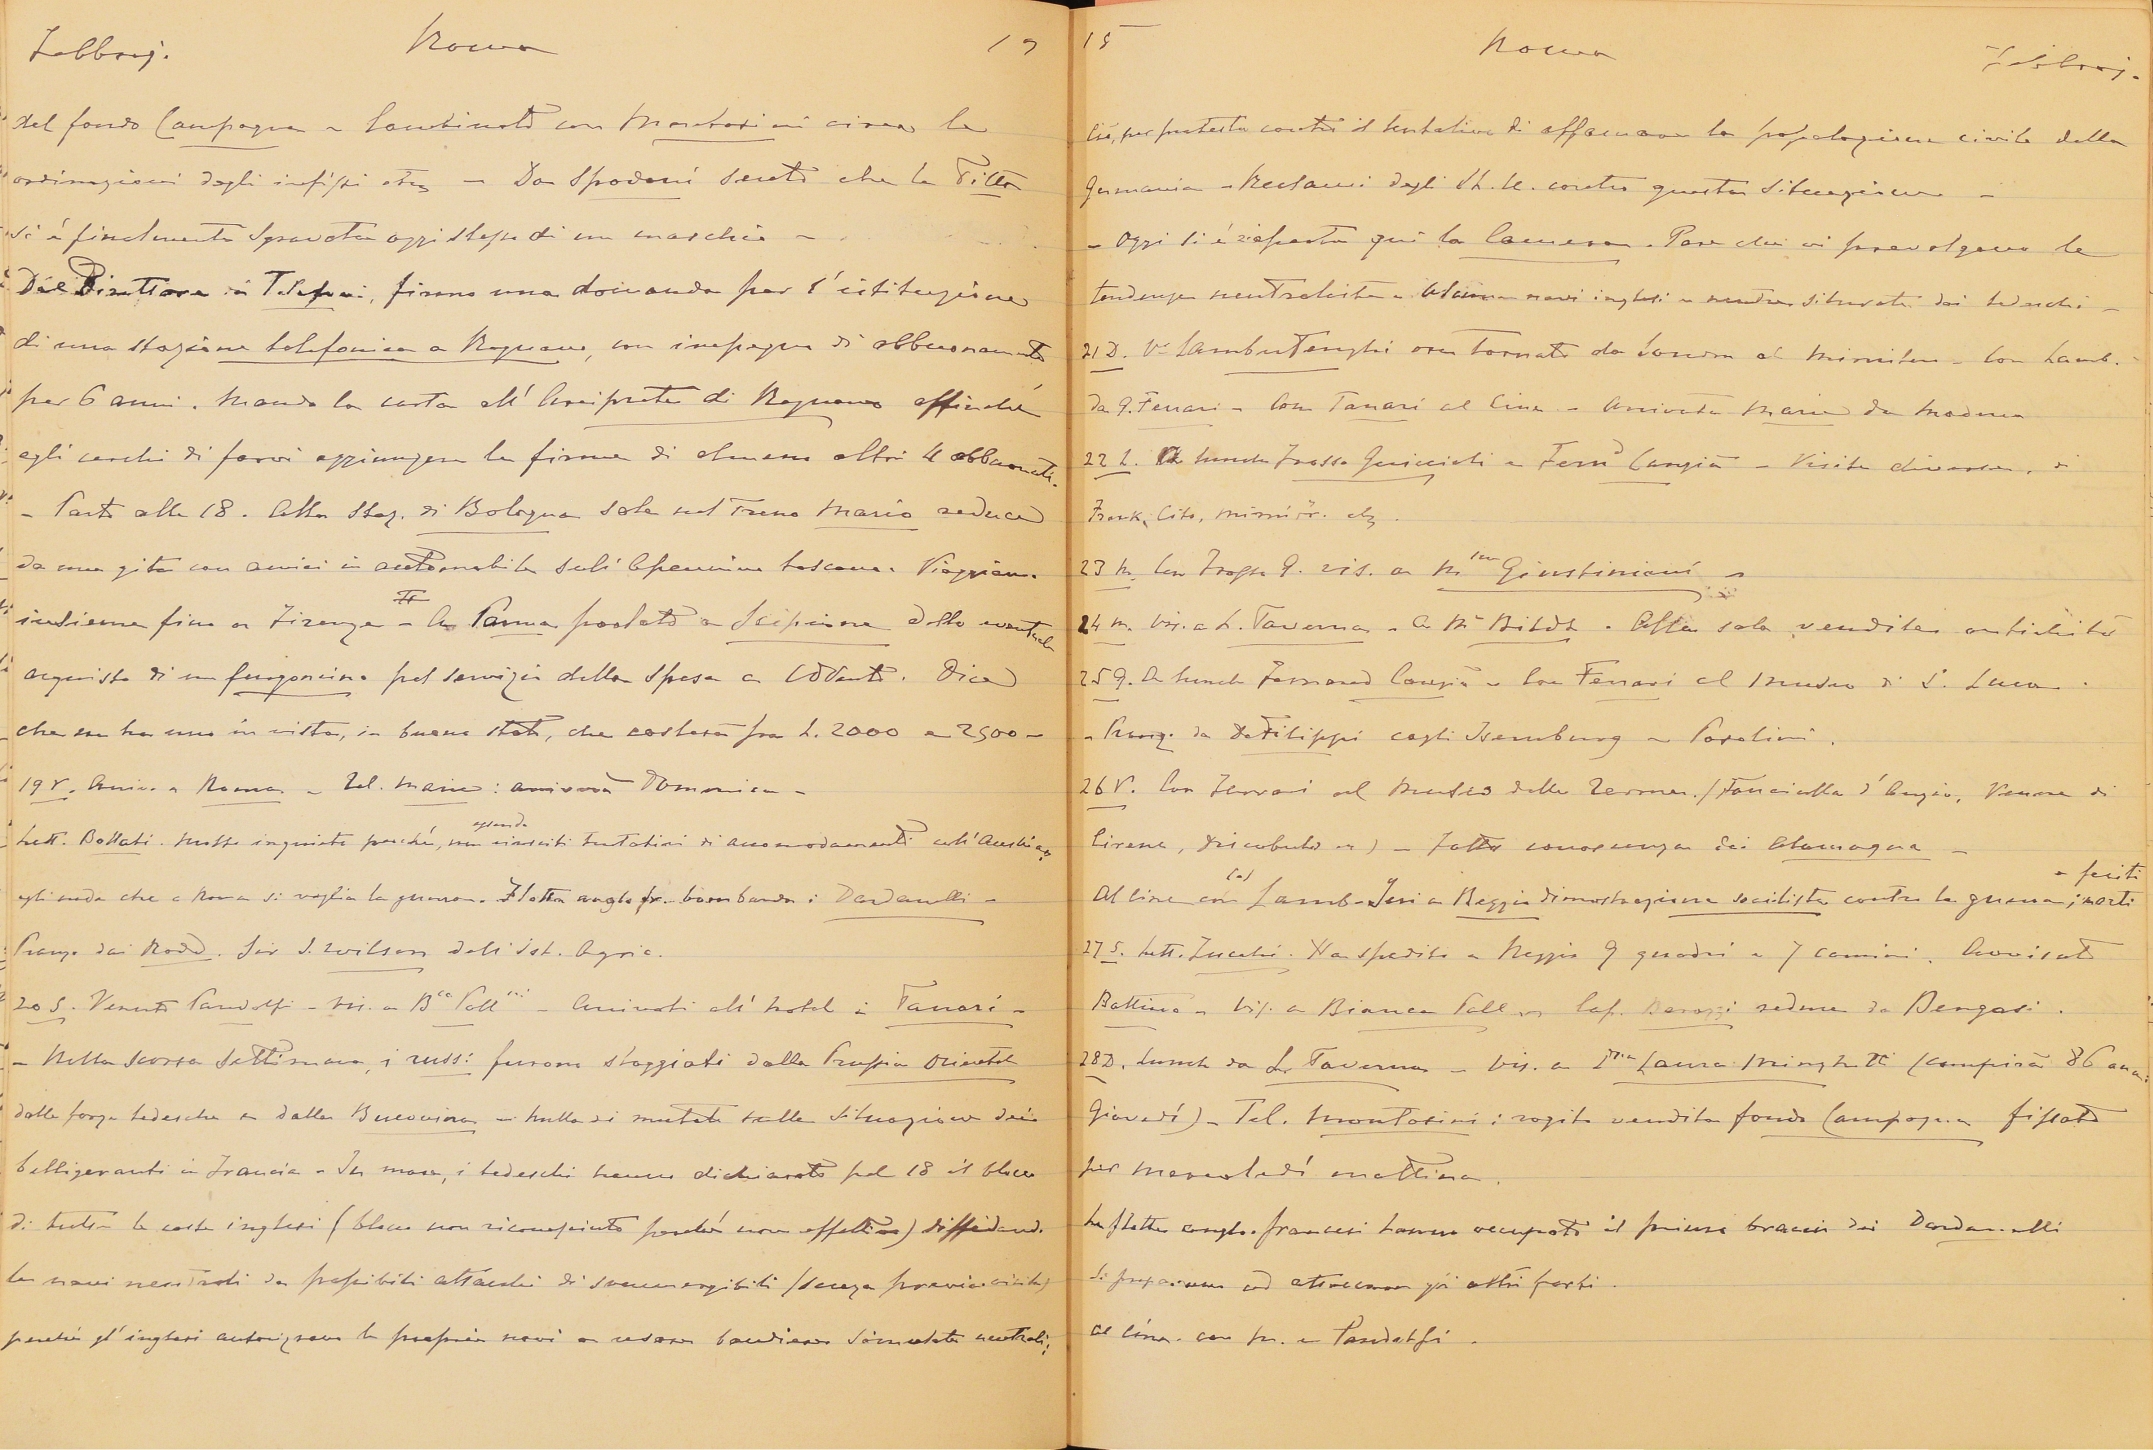 Febbraj. Roma 19
del fondo Campagna - Combinato con Montorsini circa le
ordinazioni degli infissi etc - Da Spodeni sento che la Pitton
si è finalmente sgravata oggi stesso di un maschio -
Dal Direttore ai Telefoni, firmo una domanda per l'istituzione
di una stazione telefonica a Rognano, con impegno di abbuonamento
per 6 anni. Mando la carta all'Arciprete di Rognano affinché
egli cerchi di farvi aggiungere le firme di almeno altri 4 abbuonati.
- Parto alle 18. Alla Staz. di Bologna sale nel treno Mario reduce
da una gita con amici in automobile sull'Apennino toscano. Viaggiamo
insieme fino a Firenze - A Parma parlato a Scipione dello eventuale
acquisto di un furgoncino pel servizio della spesa a. Dice
che ne ha uno in vista, in buono stato, che costerà fra L. 2000 e 2500 -
19 V. Arrivo a Roma - Tel. Maria: arriverà Domenica -
Lett. Bollati. Molto inquieto perché, non essendo riusciti tentativi di accomodamenti coll'Austria,
egli crede che a Roma si voglia la guerra. Flotta anglo fr. bombarda i Dardanelli -
Pranzo dai Rodd. Sir J. Wilson dell'Ist. Agric.
20 S. Venuto Pandolfi - Vis. a B.ca Pall.ni - Arrivati all'hotel i Tanari -
- Nella scorsa settimana, i russi furono sloggiati dalla Prussia Orientale
dalle forze tedesche e dalla Bucovina - Nulla di mutato nella situazione dei
belligeranti in Francia - In mare, i tedeschi hanno dichiarato pel 18 il blocco
di tutte le coste inglesi (blocco non riconosciuto perché non effettivo) diffidando
le navi neutrali da possibili attacchi di sommergibili (senza previa visita)
perché gl'inglesi autorizzano le proprie navi a usare bandiera simulata neutrale;
15 Roma Febbraj.
ciò, per protesta contro il tentativo di affamare la popolazione civile della
Germania - Reclami degli St. U. contro questa situazione -
- Oggi si è riaperta qui la Camera. Pare che vi prevalgano le
tendenze neutraliste - Alcune navi inglesi e neutre silurate dai tedeschi -
21 D. V.o Lambertenghi ora tornato da Londra al Ministero - Con Lamb.
da G. Ferrari - Con Tanari al Cine - Arrivata Maria da Modena
22 L. A lunch Frasso Guiccioli e Fern.d Cangià - Visite diverse, a
Frank, Cito, etc.
23 M. Con Frasso G. vis. a M.me Giustiniani -
24 M. Vis. a L. Taverna - a M.me Bildt - Alla sala vendite antichità
25 G. A lunch Fernand Cangià - Con Ferrari al Museo di S. Luca -
- Pranz. da DeFilippi cogli Isemburg - Pasolini.
26 V. Con Ferrari al Museo delle Terme. (Fanciulla d'Anzio, Venere di
Cirene, Discobulo etc) - Fatto conoscenza dei Alemagna -
Al Cine con (a) Lamb - Ieri a Reggio dimostrazione socialista contro la guerra; morti e feriti
27 S. Lett. Zucchi. Ha spedito a Reggio 9 quadri e 7 camini. Avvisato
Bottino - Vis. a Bianca Pall. Cap. Barozzi reduce da Bengasi.
28 D. Lunch da L. Taverna - Vis. a D.na Laura Minghetti (compirà 86 anni
Giovedì) - Tel. Montorsini: rogito vendita fondo Campagna fissato
per Mercoledì mattina.
La flotta anglo-francese hanno occupato il primo braccio dei Dardanelli
Si preparano ad attaccare gli altri forti.
Al Cine. con M. e Pandolfi.